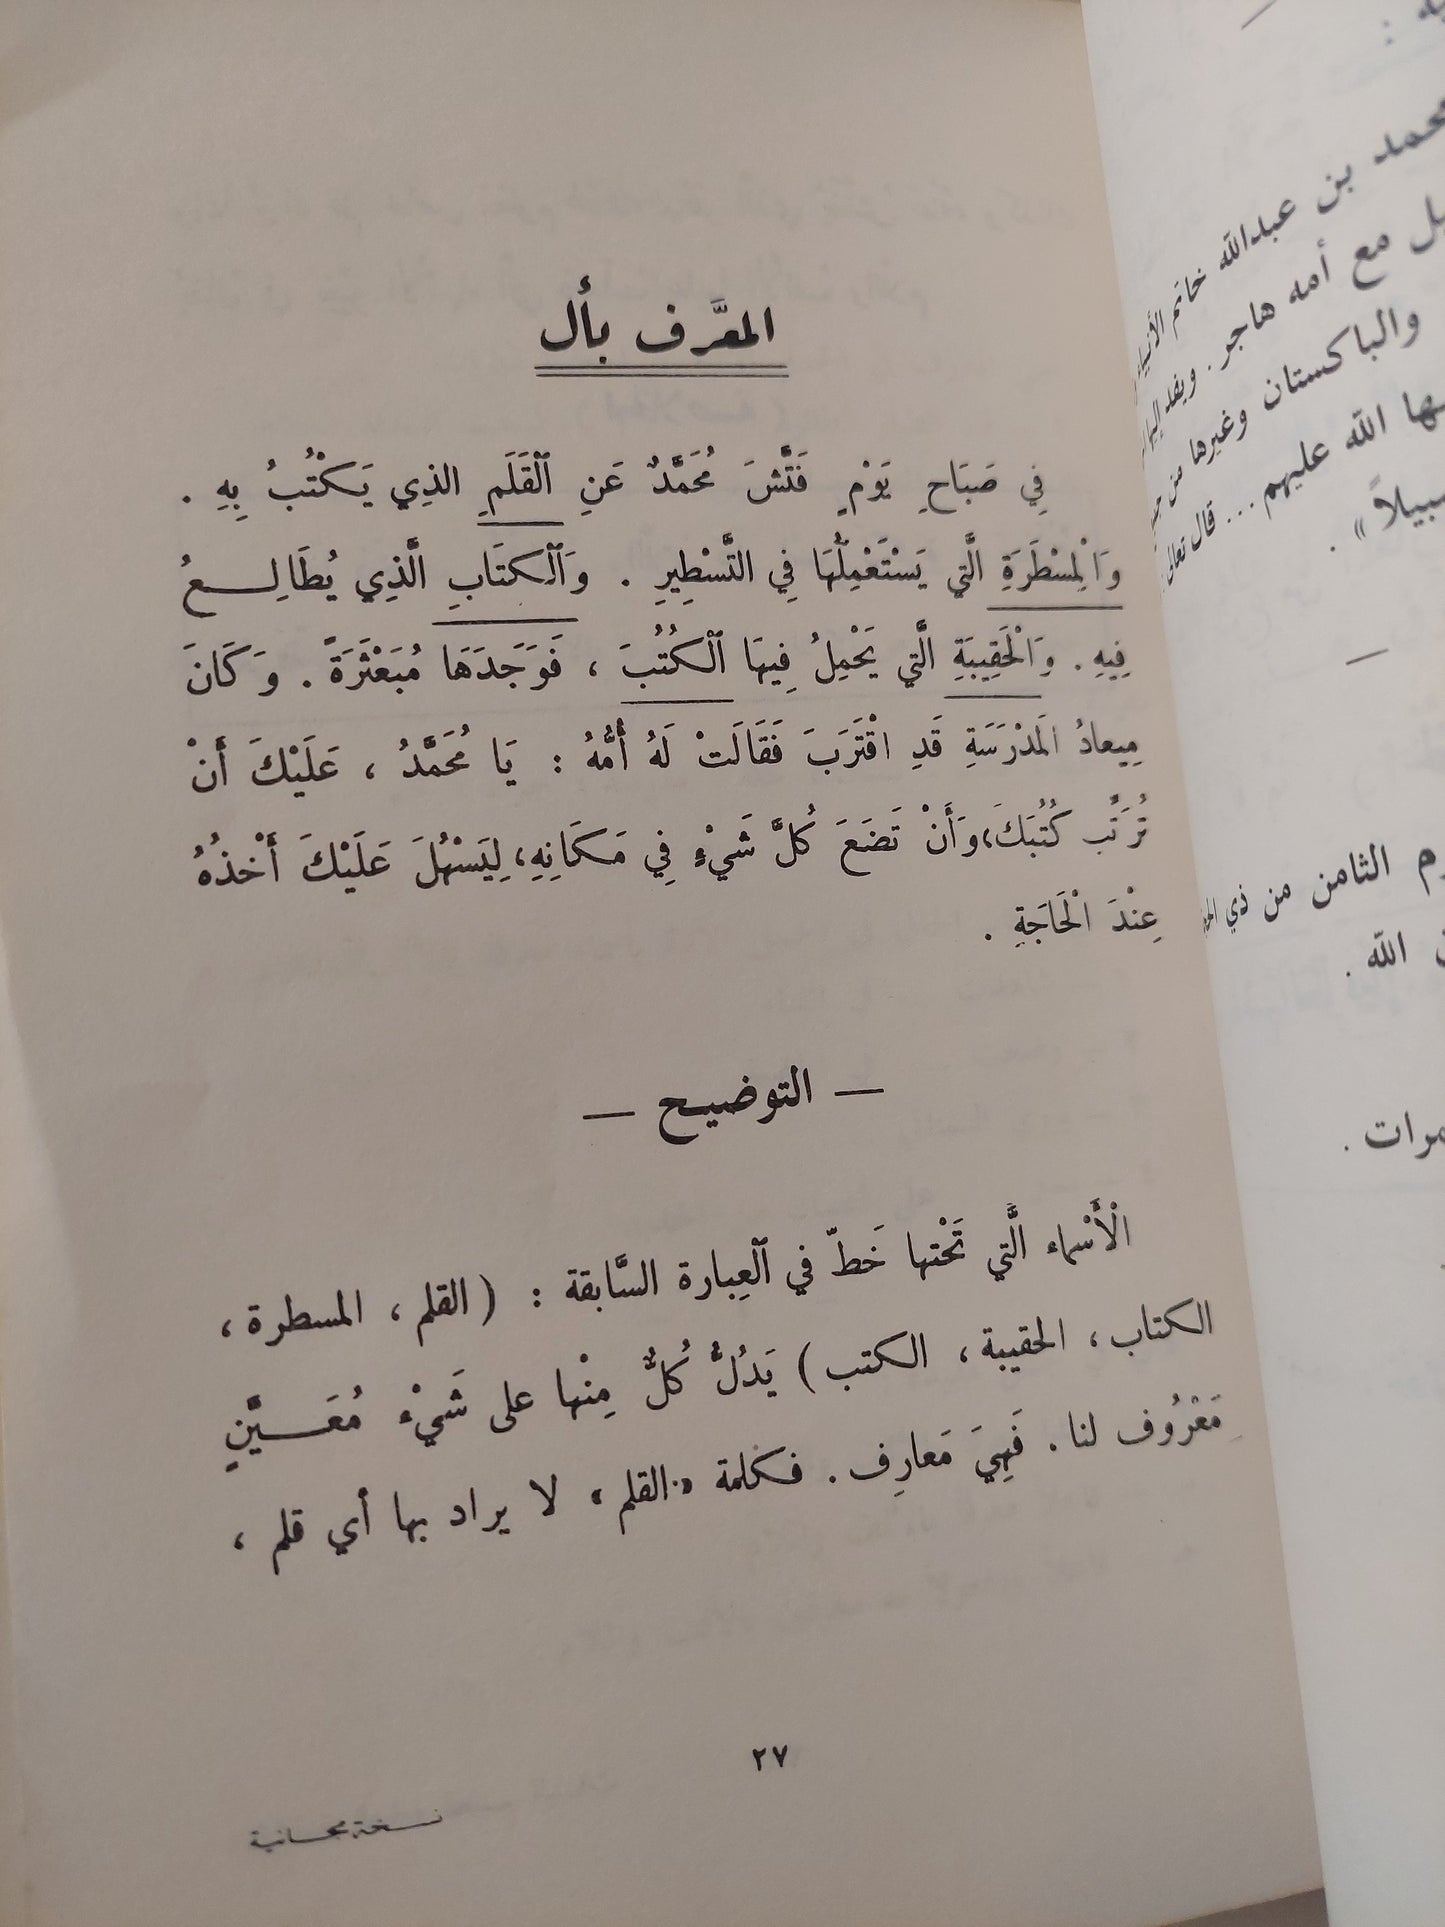 المعرَّف بأل
فِي صَبَاحِ يَوْمٍ فَتَّشَ مُحَمَّدٌ عَنِ ٱلْقَلَمِ الذِي يَكْتُبُ بِهِ .
وَالْمِسْطَرَةِ الَّتِي يَسْتَعْمِلُهَا فِي التَّسْطِيرِ . وَٱلْكتَابِ الَّذِي يُطَالِـــعُ
فِيهِ . وَالْحَقِيبَةِ الَّتِي يَحْمِلُ فِيهَا ٱلْكُتُبَ ، فَوَجَدَهَا مُبَعْثَرَةً . وَكَانَ
مِيعادُ المَدْرَسَةِ قَدِ اقْتَرَبَ فَقَالَتْ لَهُ أُمُّهُ : يَا مُحَمَّدُ ، عَلَيْكَ أَنْ
تُرَتِّب كُتُبَكَ، وَأَنْ تَضَعَ كُلَّ شَيْءٍ فِي مَكَانِهِ، لِيَسْهُلَ عَلَيْكَ أَخْذُهُ
عِنْدَ الْحَاجَةِ .
— التوضيـح —
الْأَسْماء الَّتي تَحْتها خَطّ في ٱلعِبارة السَّابقة : ( القلم ، المسطرة ،
الكتاب ، الحقيبة ، الكتب ) يَدُلُّ كُلٌّ مِنْها على شَيْءٍ مُعَـــيَّنٍ
مَعْرُوف لنا . فَهِيَ مَعارِف . فكلمة « القلم » لا يراد بها أي قلم ،
٢٧
نسخة مجانية
محمد بن عبدالله خاتم الأنبياء
مع أمه هاجر . ويفد إليها
والباكستان وغيرها من
الله عليهم ... قال تعالى
الثامن من ذي
الله .